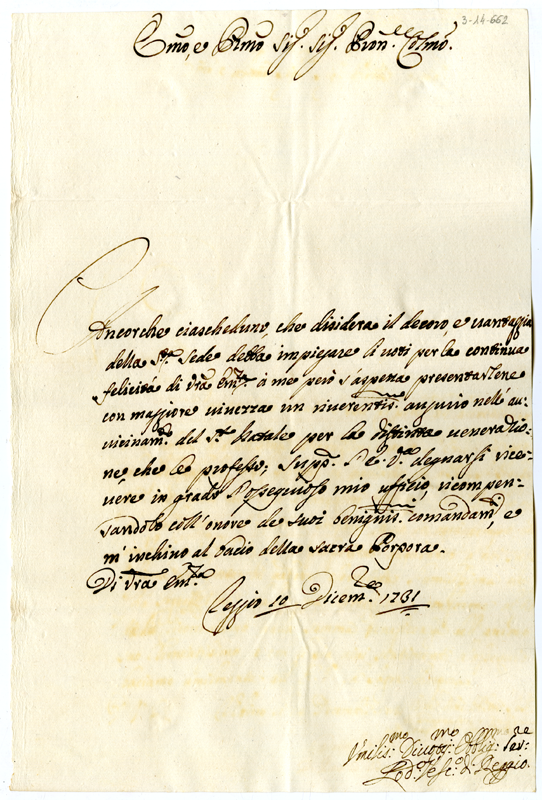 3-14-662
Emo, e Rmo Sig.r Sig.r Pron Colmo.
Ancorche ciascheduno, che disidera il decoro, e vantaggio
della S.ta Sede debba impiegare li voti per la continua
felicità di Vra Em.za à me però s'aspetta presentarlene
con maggiore vivezza un riverentis.mo augurio nell'au-
vicinam.to del S.to Natale per la distinta veneratio-
ne che le professo; Supp.co V. E. degnarsi rice-
vere in grado l'ossequioso mio uffizio, ricompen-
sandolo coll'onore de suoi benignis.mi comandam.ti, e
m'inchino al bacio della sacra Porpora.
Di Vra Em.za
Reggio 10 Dicem.re 1731
Vmilis.mo Divotis.mo Obblig.mo Ser.re
Lod.co Vesc.o di Reggio.